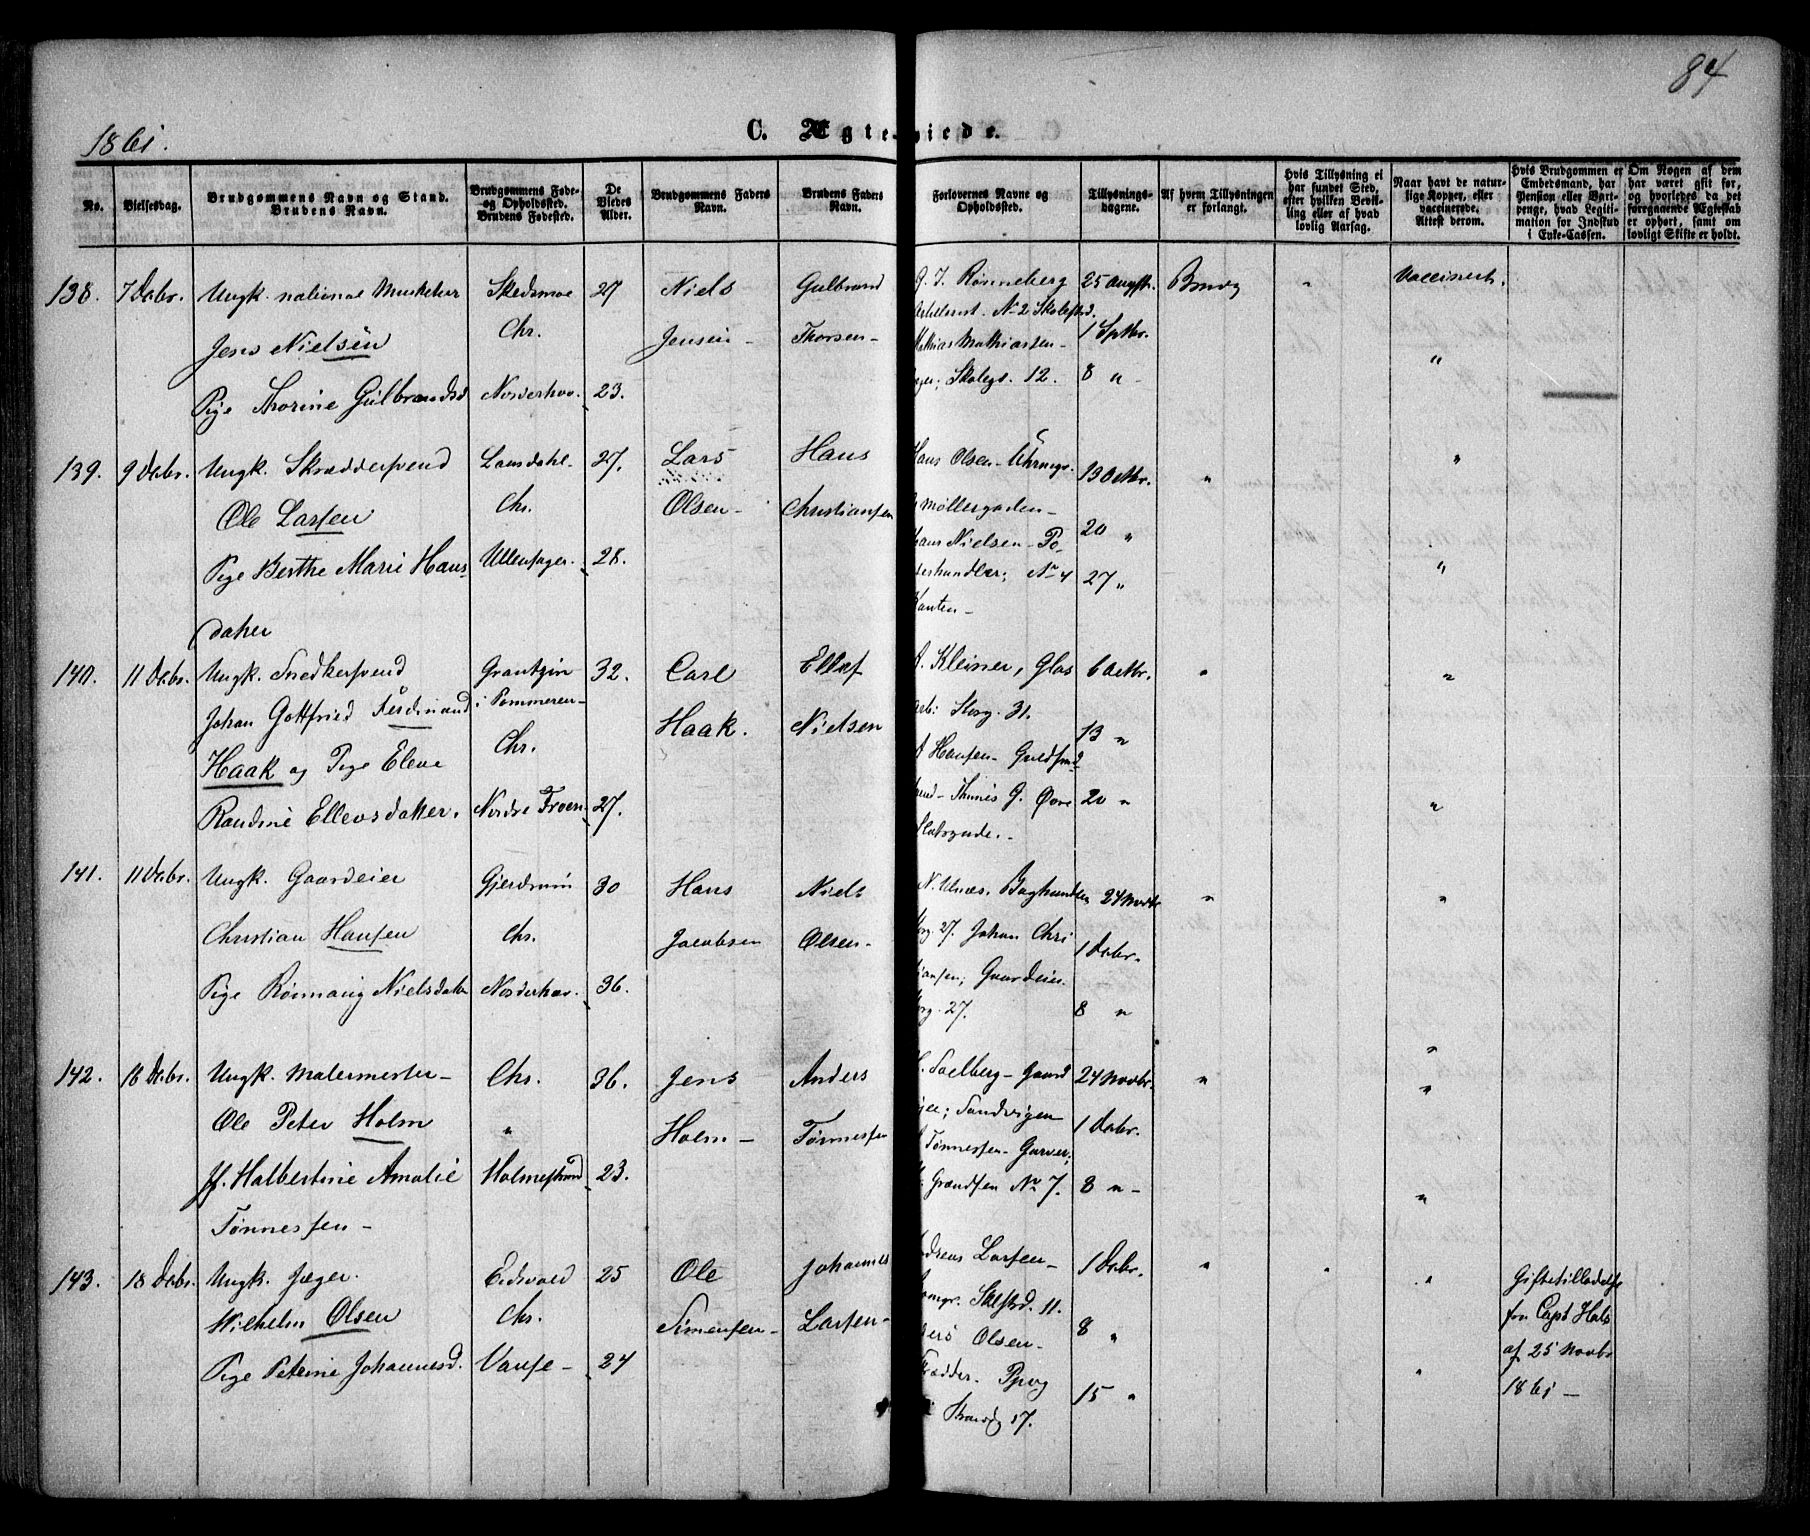 84
1861.
C. Ægteviede.
No.
Vielsesdag.
Brudgommens Navn og Stand.
Brudens Navn.
Brudgommens Føde-
og Opholdssted.
Brudens Fødested.
De
Viedes
Alder.
Brudgommens Faders
Navn.
Brudens Faders
Navn.
Forlovernes Navne og
Opholdssted.
Tillysnings-
dagene.
Af hvem Tillysningen
er forlangt.
Hvis Tillysning ei
har fundet Sted,
efter hvilken Bevil-
ling eller af hvad
lovlig Aarsag.
Naar havt de natur-
lige Kopper, eller
vaccinerede.
Attest derom.
Hvis Brudgommen er
Embedsmand, har
Pension eller Vart-
penge, hvad Legiti-
mation for Indskud
i Enke-Cassen.
Om Nogen af dem
har været gift før,
og hvorledes da det
foregaaende Ægteskab
er ophørt, samt om
lovligt Skifte er holdt.
138. 7 Decbr. Ungk. national Musketeer Skedsmoe 27 Niels Gulbrand G. J. Rønneberg 25 Augst. Brudg " Vaccineret.
Arbeidsret. No 2 Skolestrd.
Jens Nielsen Chr. Jensen - Thorsen - Mathias Mathiassen - 1 Sptbr. "
Skolegt. 12. 8 " -
Pige Thorine Gulbrandsd. Norderhov. 23.
139. 9 Decbr. Ungk. Skrædersvend Lomsdahl. 27. Lars Hans Hans Olsen - 13 Octbr. " "
Ole Larsen Chr. Olsen - Christiansen Møllergaden - 20 "
Pige Berthe Marie Hans Ullensager. 28. Hans Nielsen - Po- "
No 4 27 "
datter
140. 11 Decbr. Ungk. Snedkersvend Grantzin 32. Carl Ellef A. Kleiner, Glas 6 Octbr. " "
Johan Gottfried Ferdinand i Pommeren - Storg. 31.
Haak og Pige Eleve Chr. Haak. Nielsen A Hansen - Guldsmd 13 "
Randine Ellevsdatter. Nordre Froen 27. svend - Thunes G. Øvre 20 " "
Slotsgade. -
141. 11 Decbr. Ungk. Gaardeier Gjerdrum 30 Hans Niels N. Ulnæs, Baghandler 24 Novbr " "
Christian Hansen Chr. Jacobsen Olsen - Storg. 27. Johan Chri 1 Decbr.
Pige Rønnaug Nielsdatr Norderhov. 36. stiansen, Gaardeier
Storg. 27. 8 " "
142. 16 Decbr. Ungk. Malermester - Chr. 36. Jens Anders Saelberg - Gaard 24 Novbr. " "
Ole Peter Holm " Holm - Tønnessen Sandvigen 1 Decbr.
Tønnessen - Garver,
Jf. Halbertine Amalie Holmestrand 23. Grændsen No 7. 8 " - "
Tønnessen -
143. 18 Decbr. Ungk. Jæger Eidsvold 25 Ole Johannes Andreas Larsen - 1 Decbr. " " " Giftetilladelse
Wilhelm Olsen Chr. Simensen - Larsen - 11. fra Capt Hals
Anders Olsen - 8 " af 25 Novbr
Pige Peterine Johannesd. Vanse - 24 15 " " 1861 -
17.